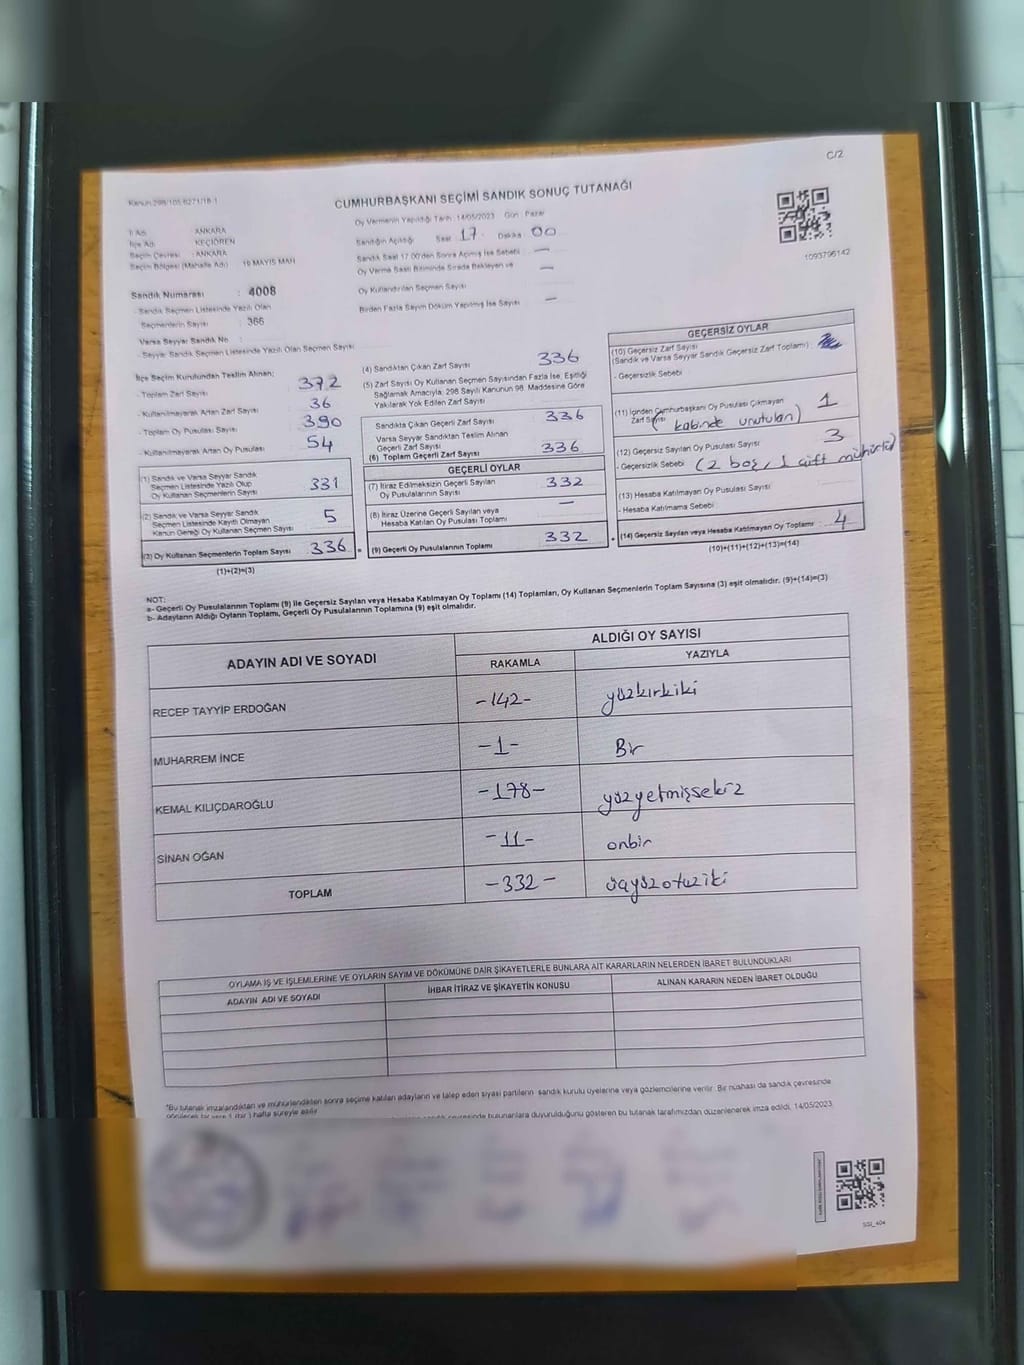 C/2
Kanun:298/105 6271/18-1
CUMHURBAŞKANI SEÇİMİ SANDIK SONUÇ TUTANAĞI
Oy Vermenin Yapıldığı Tarih :14/05/2023 Gün : Pazar
Sandığın Açıldığı Saat 17 Dakika 00
Sandık Saat 17:00'den Sonra Açılmış İse Sebebi —
Oy Verme Saati Bitiminde Sırada Bekleyen ve —
Oy Kullandırılan Seçmen Sayısı
Birden Fazla Sayım Döküm Yapılmış İse Sayısı —
1093796142
İl Adı : ANKARA
İlçe Adı : KEÇİÖREN
Seçim Çevresi : ANKARA
Seçim Bölgesi (Mahalle Adı) : 19 MAYIS MAH
Sandık Numarası : 4008
- Sandık Seçmen Listesinde Yazılı Olan
Seçmenlerin Sayısı : 366
Varsa Seyyar Sandık No :
- Seyyar Sandık Seçmen Listesinde Yazılı Olan Seçmen Sayısı
İlçe Seçim Kurulundan Teslim Alınan;
- Toplam Zarf Sayısı 372
- Kullanılmayarak Artan Zarf Sayısı 36
- Toplam Oy Pusulası Sayısı 390
- Kullanılmayarak Artan Oy Pusulası 54
(1) Sandık ve Varsa Seyyar Sandık
Seçmen Listesinde Yazılı Olup
Oy Kullanan Seçmenlerin Sayısı 331
(2) Sandık ve Varsa Seyyar Sandık
Seçmen Listesinde Kayıtlı Olmayan
Kanun Gereği Oy Kullanan Seçmen Sayısı 5
(3) Oy Kullanan Seçmenlerin Toplam Sayısı 336
(1)+(2)=(3)
(4) Sandıktan Çıkan Zarf Sayısı 336
(5) Zarf Sayısı Oy Kullanan Seçmen Sayısından Fazla İse, Eşitliği
Sağlamak Amacıyla; 298 Sayılı Kanunun 98. Maddesine Göre
Yakılarak Yok Edilen Zarf Sayısı
Sandıkta Çıkan Geçerli Zarf Sayısı 336
Varsa Seyyar Sandıktan Teslim Alınan
Geçerli Zarf Sayısı
(6) Toplam Geçerli Zarf Sayısı 336
GEÇERLİ OYLAR
(7) İtiraz Edilmeksizin Geçerli Sayılan
Oy Pusulalarının Sayısı 332
(8) İtiraz Üzerine Geçerli Sayılan veya
Hesaba Katılan Oy Pusulası Toplamı —
= (9) Geçerli Oy Pusulalarının Toplamı 332
GEÇERSİZ OYLAR
(10) Geçersiz Zarf Sayısı
(Sandık ve Varsa Seyyar Sandık Geçersiz Zarf Toplamı) :
- Geçersizlik Sebebi
(11) İçinden Cumhurbaşkanı Oy Pusulası Çıkmayan
Zarf Sayısı 1
(kabinde unutulan)
(12) Geçersiz Sayılan Oy Pusulası Sayısı 3
- Geçersizlik Sebebi (2 boş, 1 çift mühürlü)
(13) Hesaba Katılmayan Oy Pusulası Sayısı
- Hesaba Katılmama Sebebi
+ (14) Geçersiz Sayılan veya Hesaba Katılmayan Oy Toplamı : 4
(10)+(11)+(12)+(13)=(14)
NOT:
a- Geçerli Oy Pusulalarının Toplamı (9) ile Geçersiz Sayılan veya Hesaba Katılmayan Oy Toplamı (14) Toplamları, Oy Kullanan Seçmenlerin Toplam Sayısına (3) eşit olmalıdır. (9)+(14)=(3)
b- Adayların Aldığı Oyların Toplamı, Geçerli Oy Pusulalarının Toplamına (9) eşit olmalıdır.
ADAYIN ADI VE SOYADI ALDIĞI OY SAYISI
RAKAMLA YAZIYLA
RECEP TAYYİP ERDOĞAN -142- yüzkırkiki
MUHARREM İNCE -1- Bir
KEMAL KILIÇDAROĞLU -178- yüzyetmişsekiz
SİNAN OĞAN -11- onbir
TOPLAM -332- üçyüzotuziki
OYLAMA İŞ VE İŞLEMLERİNE VE OYLARIN SAYIM VE DÖKÜMÜNE DAİR ŞİKAYETLERLE BUNLARA AİT KARARLARIN NELERDEN İBARET BULUNDUKLARI
ADAYIN ADI VE SOYADI İHBAR İTİRAZ VE ŞİKAYETİN KONUSU ALINAN KARARIN NEDEN İBARET OLDUĞU
*Bu tutanak imzalandıktan ve mühürlendikten sonra seçime katılan adayların ve talep eden siyasi partilerin sandık kurulu üyelerine veya gözlemcilerine verilir. Bir nüshası da sandık çevresinde
görülecek bir yere 1 (bir) hafta süreyle asılır
sandık çevresinde bulunanlara duyurulduğunu gösteren bu tutanak tarafımızdan düzenlenerek imza edildi. 14/05/2023
SSI_404